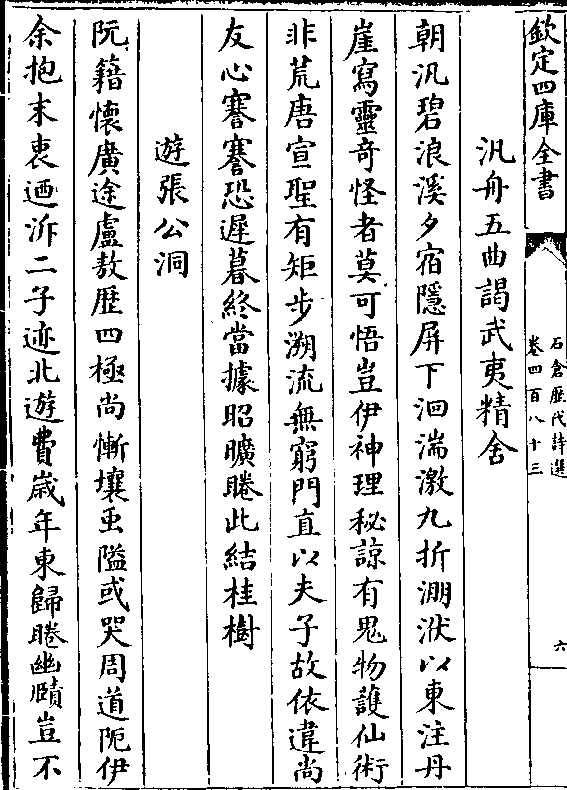 欽定四庫全書
石倉歴代詩選
卷四百八十三
六
汎舟五曲謁武夷精舍
朝汎碧浪溪夕宿隱屏下洄湍激九折淜洑以東注丹
崖寫靈奇怪者莫可悟豈伊神理秘諒有鬼物護仙術
非荒唐宣聖有矩步溯流無窮門直以夫子故依違尚
友心蹇蹇恐遲暮終當據昭曠睠此結桂樹
遊張公洞
阮籍懷廣途盧敖歴四極尚慚壤䖝隘或哭周道阨伊
余抱末衷迺泝二子迹北遊費歳年東歸睠幽賾豈不